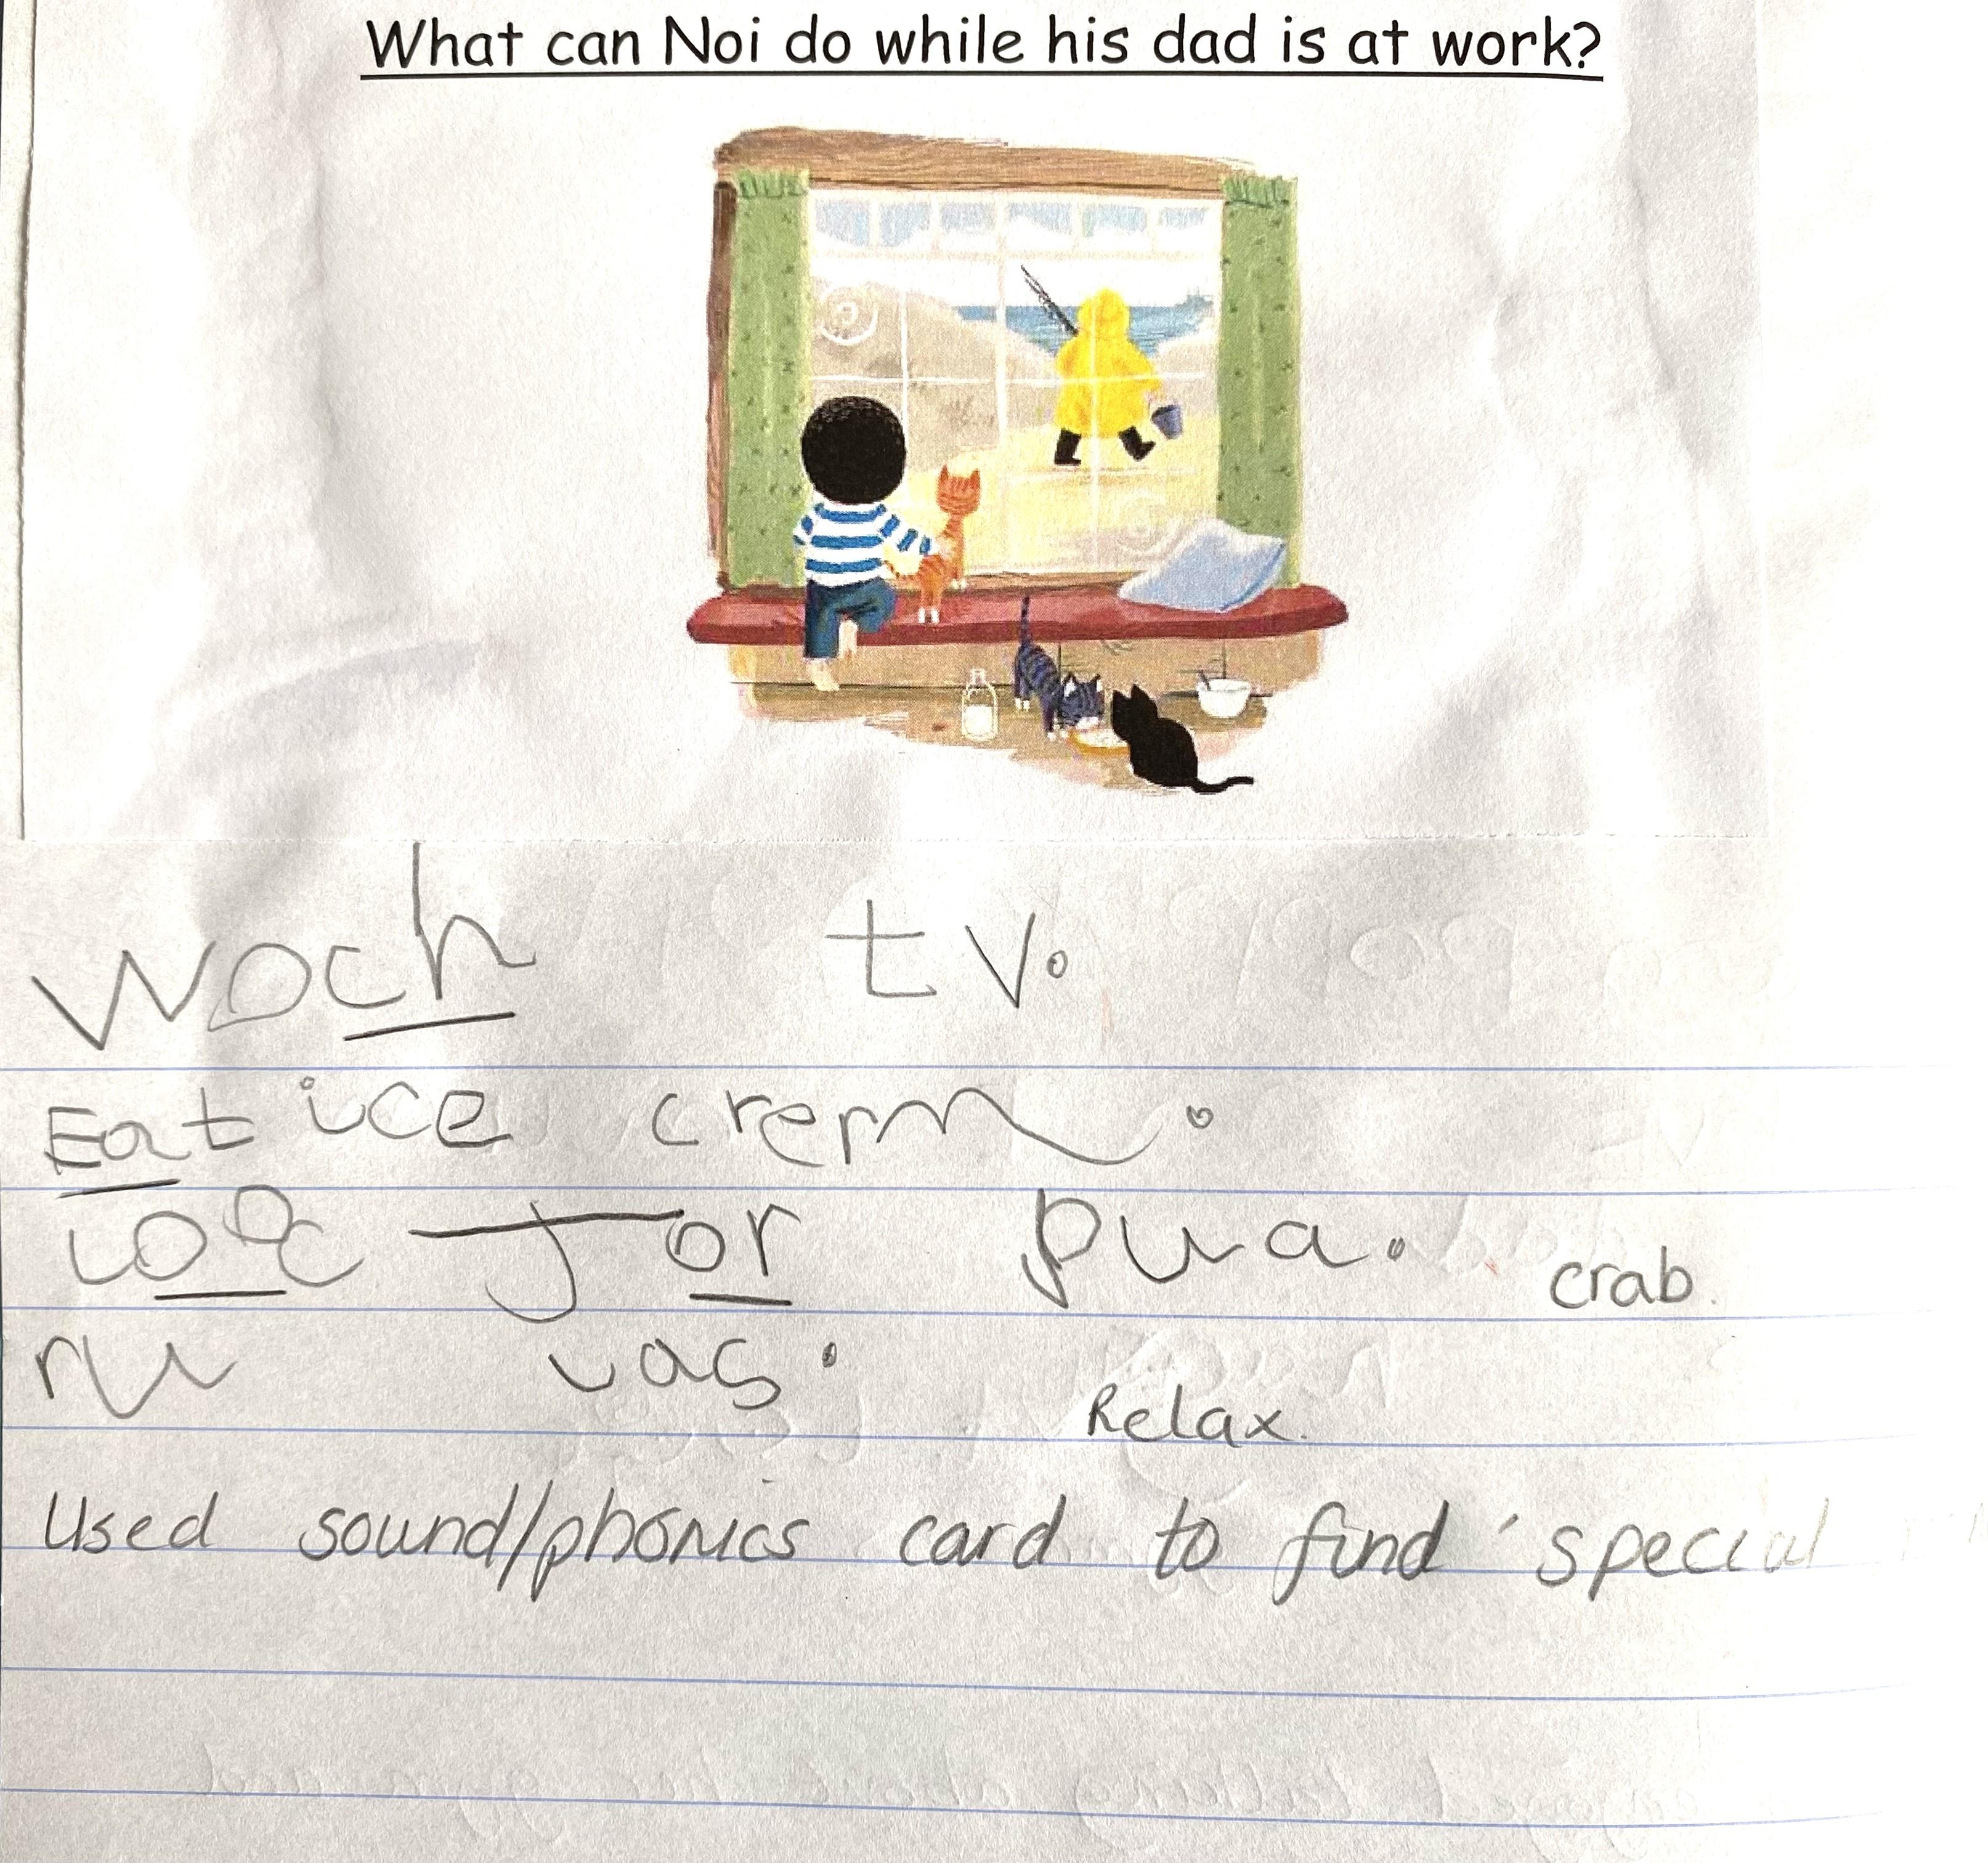 What can Noi do while his dad is at work?
woch tv.
Eat ice crem.
looc for pua. crab.
ru las. Relax.
Used sound/phonics card to find 'special